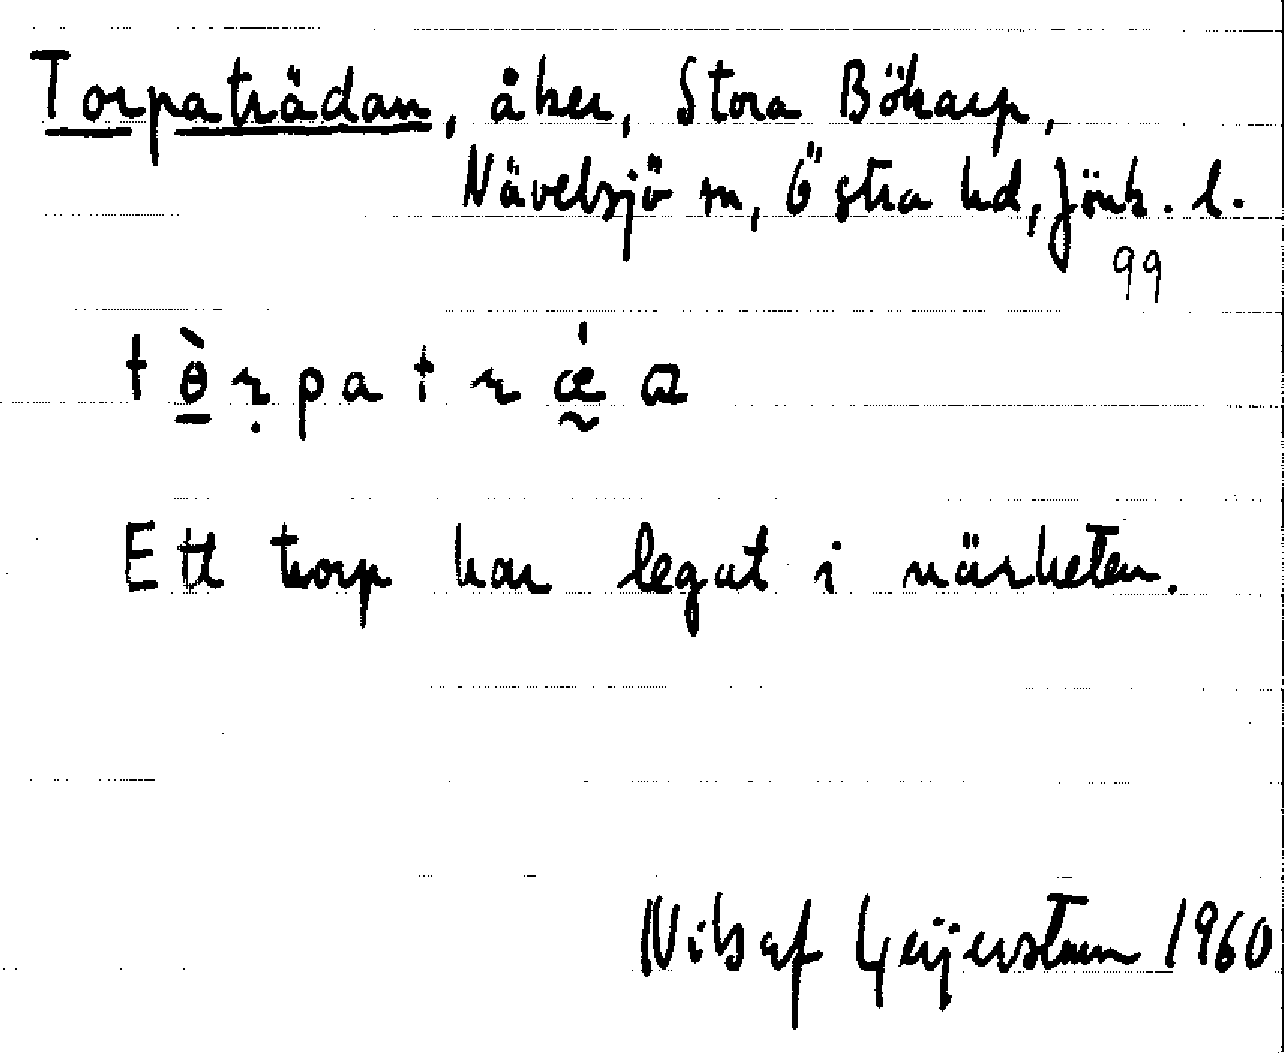 Torpaträdan, åker, Stora Bökarp,
Nävelsjö sn, Östra hd, Jönk. l.
99
t ө̀ ɾ̣ p a t ɾ ǽ̰ ɑ
Ett torp har legat i närheten.
Nils af Geijerstam 1960